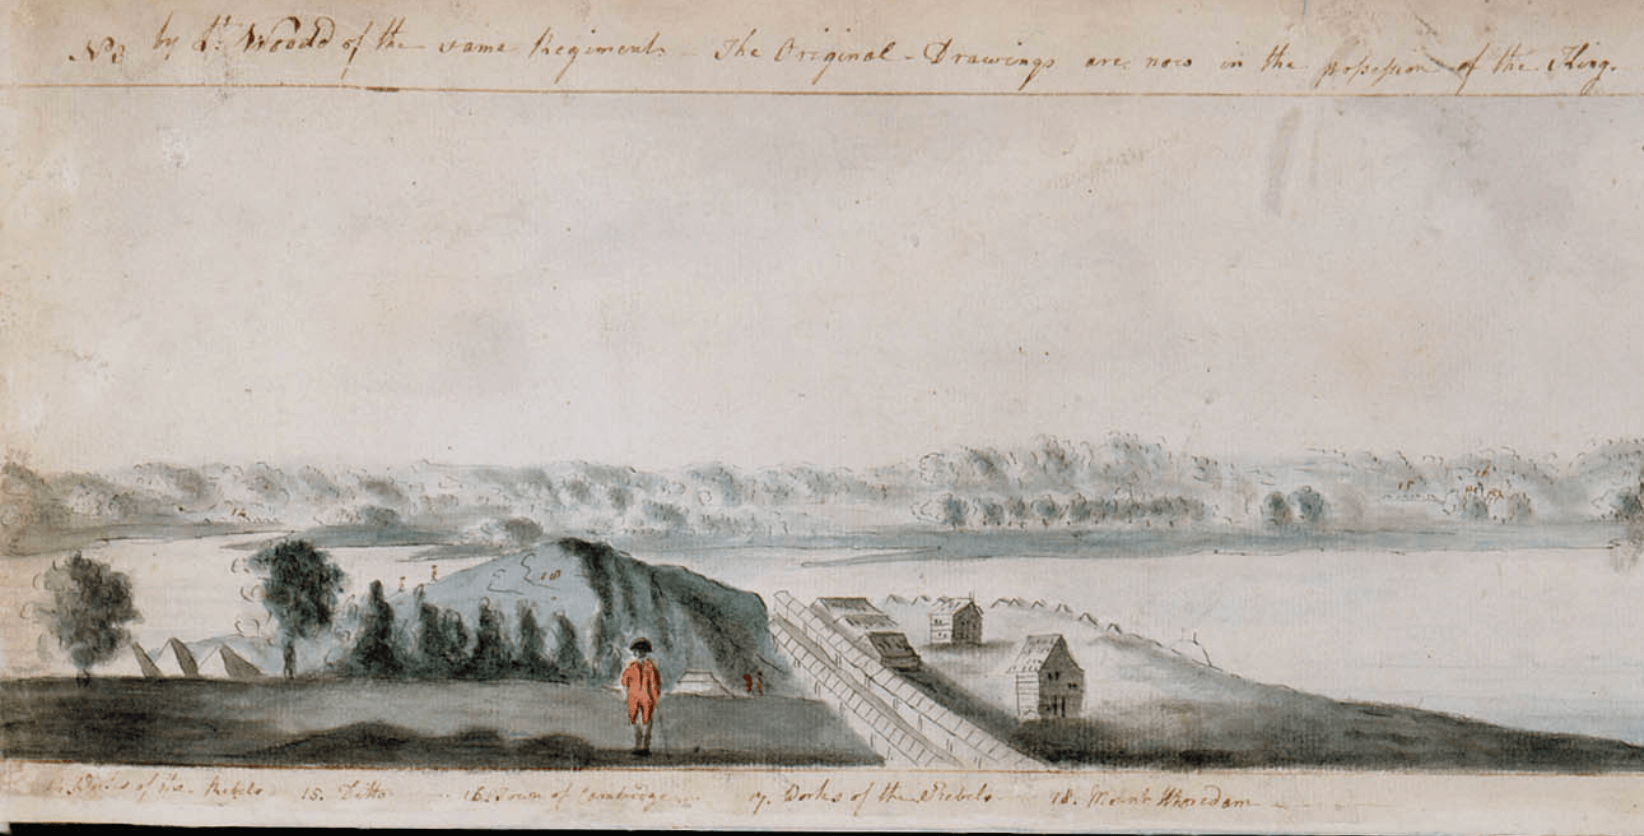 No 3 by Lt. Woodd of the same Regiment - The Original - Drawings are now in the possession of the King.
14
18
15
16
14. Works of the Rebels 15. Ditto 16. Town of Cambridge 17. Works of the Rebels 18. Mount Whoredom